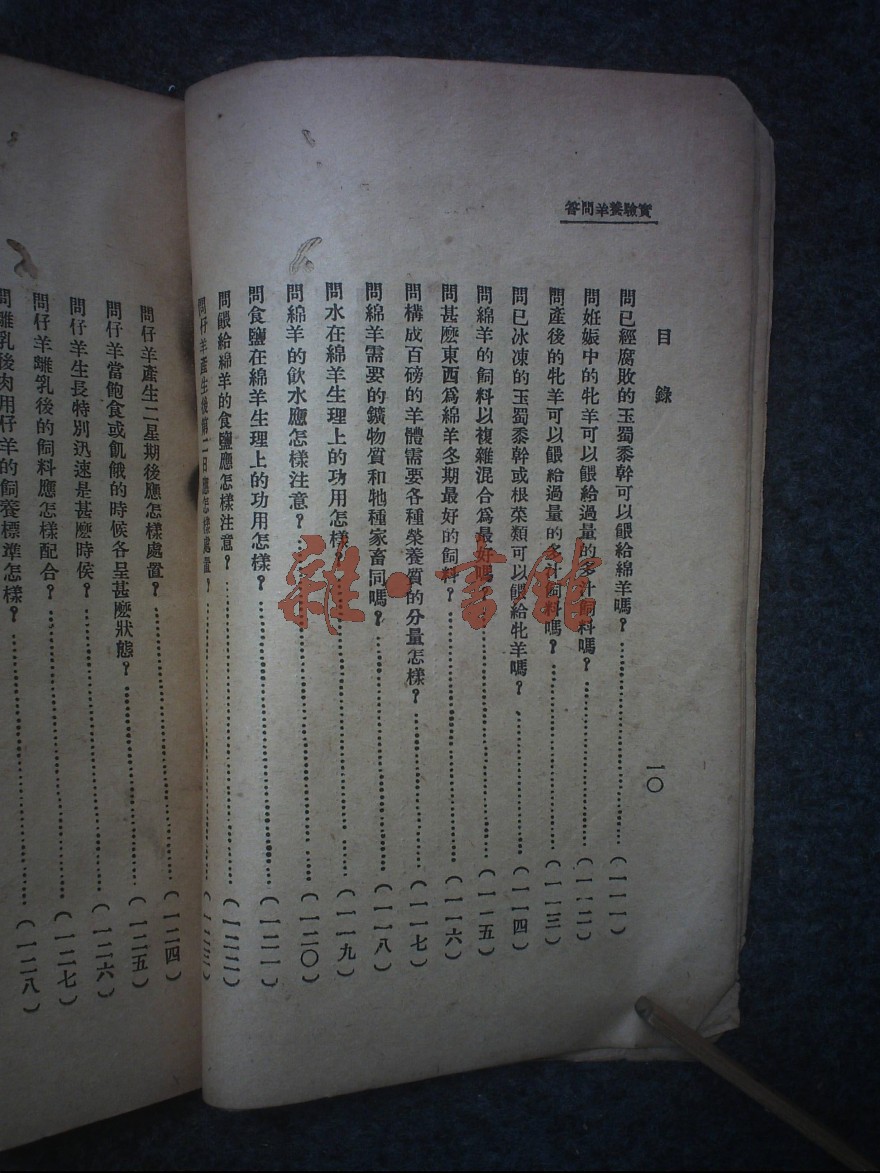 實驗養羊問答
目錄
一〇
問已經腐敗的玉蜀黍幹可以餵給綿羊嗎？……(一一一)
問妊娠中的牝羊可以餵給過量的多汁飼料嗎？……(一一二)
問產後的牝羊可以餵給過量的多汁飼料嗎？……(一一三)
問已冰凍的玉蜀黍幹或根菜類可以餵給牝羊嗎？……(一一四)
問綿羊的飼料以複雜混合爲最好嗎？……(一一五)
問甚麽東西爲綿羊冬期最好的飼料？……(一一六)
問構成百磅的羊體需要各種榮養質的分量怎樣？……(一一七)
問綿羊需要的鑛物質和牠種家畜同嗎？……(一一八)
問水在綿羊生理上的功用怎樣？……(一一九)
問綿羊的飲水應怎樣注意？……(一二〇)
問食鹽在綿羊生理上的功用怎樣？……(一二一)
問餵給綿羊的食鹽應怎樣注意？……(一二二)
問仔羊產生後第二日應怎樣處置？……(一二三)
問仔羊產生二星期後應怎樣處置？……(一二四)
問仔羊當飽食或飢餓的時候各呈甚麽狀態？……(一二五)
問仔羊生長特別迅速是甚麽時候？……(一二六)
問仔羊離乳後的飼料應怎樣配合？……(一二七)
問離乳後肉用仔羊的飼養標準怎樣？……(一二八)
雜·書館